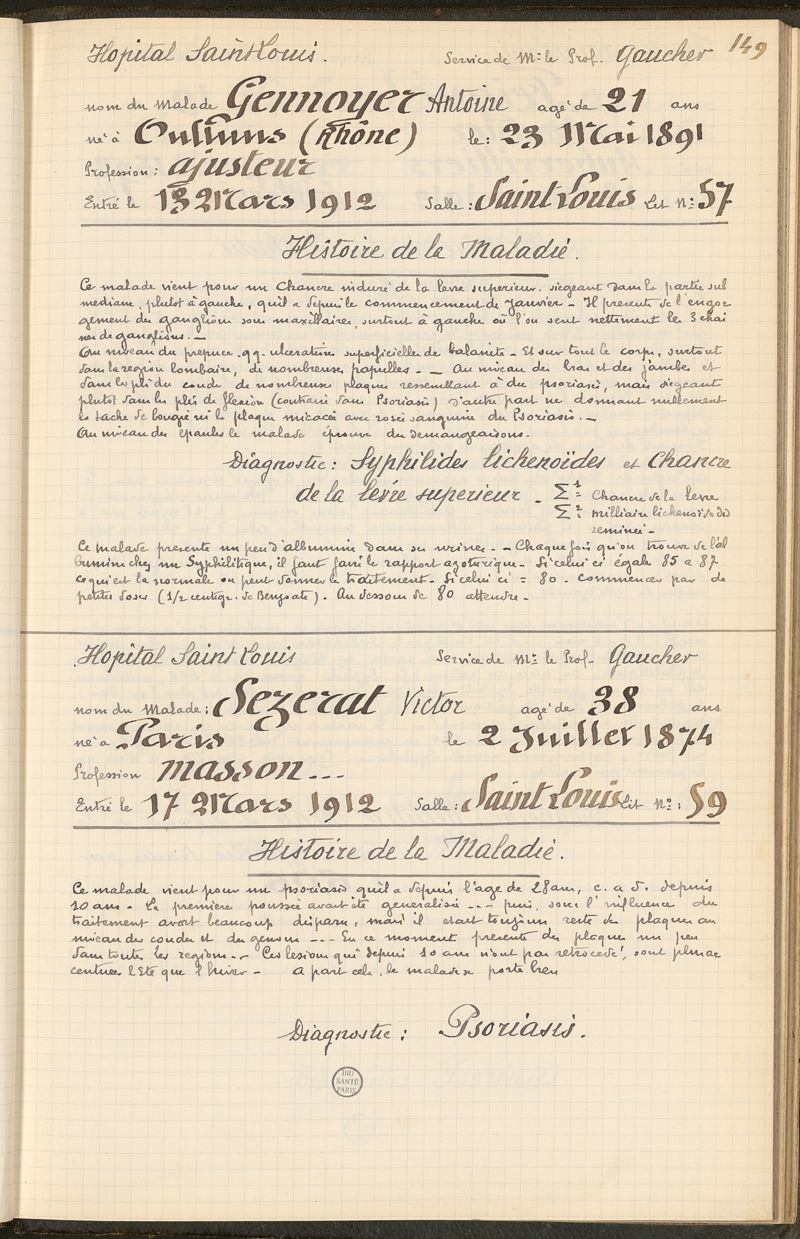 149
Hopital Saint Louis. Service de Mr: le Prof. Gaucher
nom du Malade Gennoyer Antoine agé de 21 ans
né à Oullins (Rhône) le: 23 Mai 1891
Profession: ajusteur
Entré le 13 Mars 1912 Salle: Saint Louis Lit No: 57
Histoire de la Maladie.
Ce malade vient pour un Chancre induré de la levre superieur. siegeant dans la partie sub
mediane, plutot à gauche, qu'il a depuis le commencement de Janvier - Il presente de l'engor
gement des ganglions sous maxillaires, surtout à gauche où l'on sent nettement les 3 chai
nes de ganglions. -
Au niveau du prepuce. qq. ulceration superficielle de balanite - Et sur tout le corps, surtout
dans la region lombaire, de nombreuses papulles. - - Au niveau des bras et des jambes et
dans les plis du coude de nombreuses plaques ressemblant à du psoriasis, mais siegeant
plutot dans les plis de flexion (contraire dans Psoriasis) d'autre part ne donnant nullement
la tache de bougie ni la plaque micacée avec rosée sanguine du Psoriasis. -
Au niveau des epaules le malade éprouve des demangeaisons.
Diagnostic: Syphilides lichenoïdes et Chancre
de la levre superieur - Σ1= Chancre de la levre
Σ2= milliaire lichenoïde dis
seminée -
Ce malade presente un peu d'albumine dans ses urines. - Chaque fois qu'on trouve de l'al
bumine chez un Syphilitique, il faut faire le rapport azoturique. Si celui ci égale 85 à 87
ce qui est la normale on peut donner le traitement. Si celui ci = 80 - commencer par de
petites doses (1/2 centigr. de Benzoate). Au dessous de 80 attendre -
Hopital Saint Louis Service de Mr: le Prof- Gaucher
nom du Malade: Sezerat Victor agé de 38 ans
né à Paris le 2 Juillet 1874
Profession masson - - -
Entré le 17 Mars 1912 Salle: Saint Louis Lit No: 59
Histoire de la Maladie.
Ce malade vient pour un psoriasis qu'il a depuis l'age de 28 ans, c. a d. depuis
10 ans - La premiere poussée avait été generalisée - - - puis, sous l'influence du
traitement avait beaucoup disparu, mais il etait toujours resté des plaques au
niveau des coudes et des genoux - - - En ce moment presente des plaques un peu
dans toutes les regions. - Ces lesions qui depuis 10 ans n'ont pas retrocedé, sont plus ac
centuées l'Eté que l'hiver - A part cela, le malade se porte bien
Diagnostic: Psoriasis.
BIU
SANTÉ
PARIS